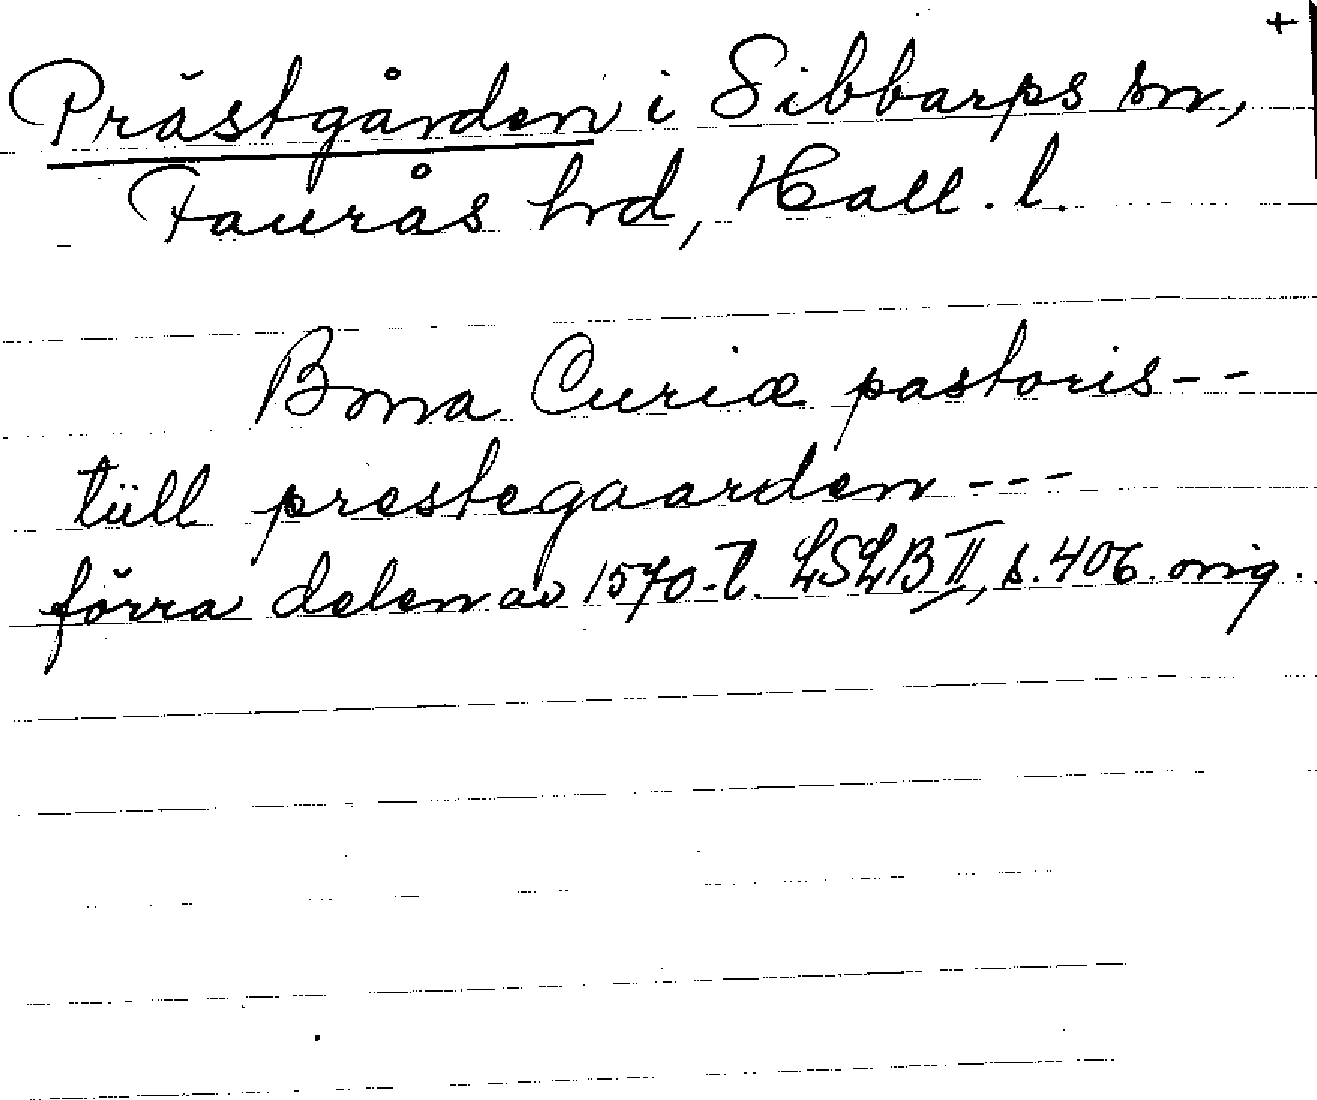 +
Prästgården i Sibbarps sn,
Faurås hrd, Hall. l.
Bona Curiæ pastoris--
tüll prestegaarden---
förra delen av 1570-t. LSLB II, s. 406. orig.